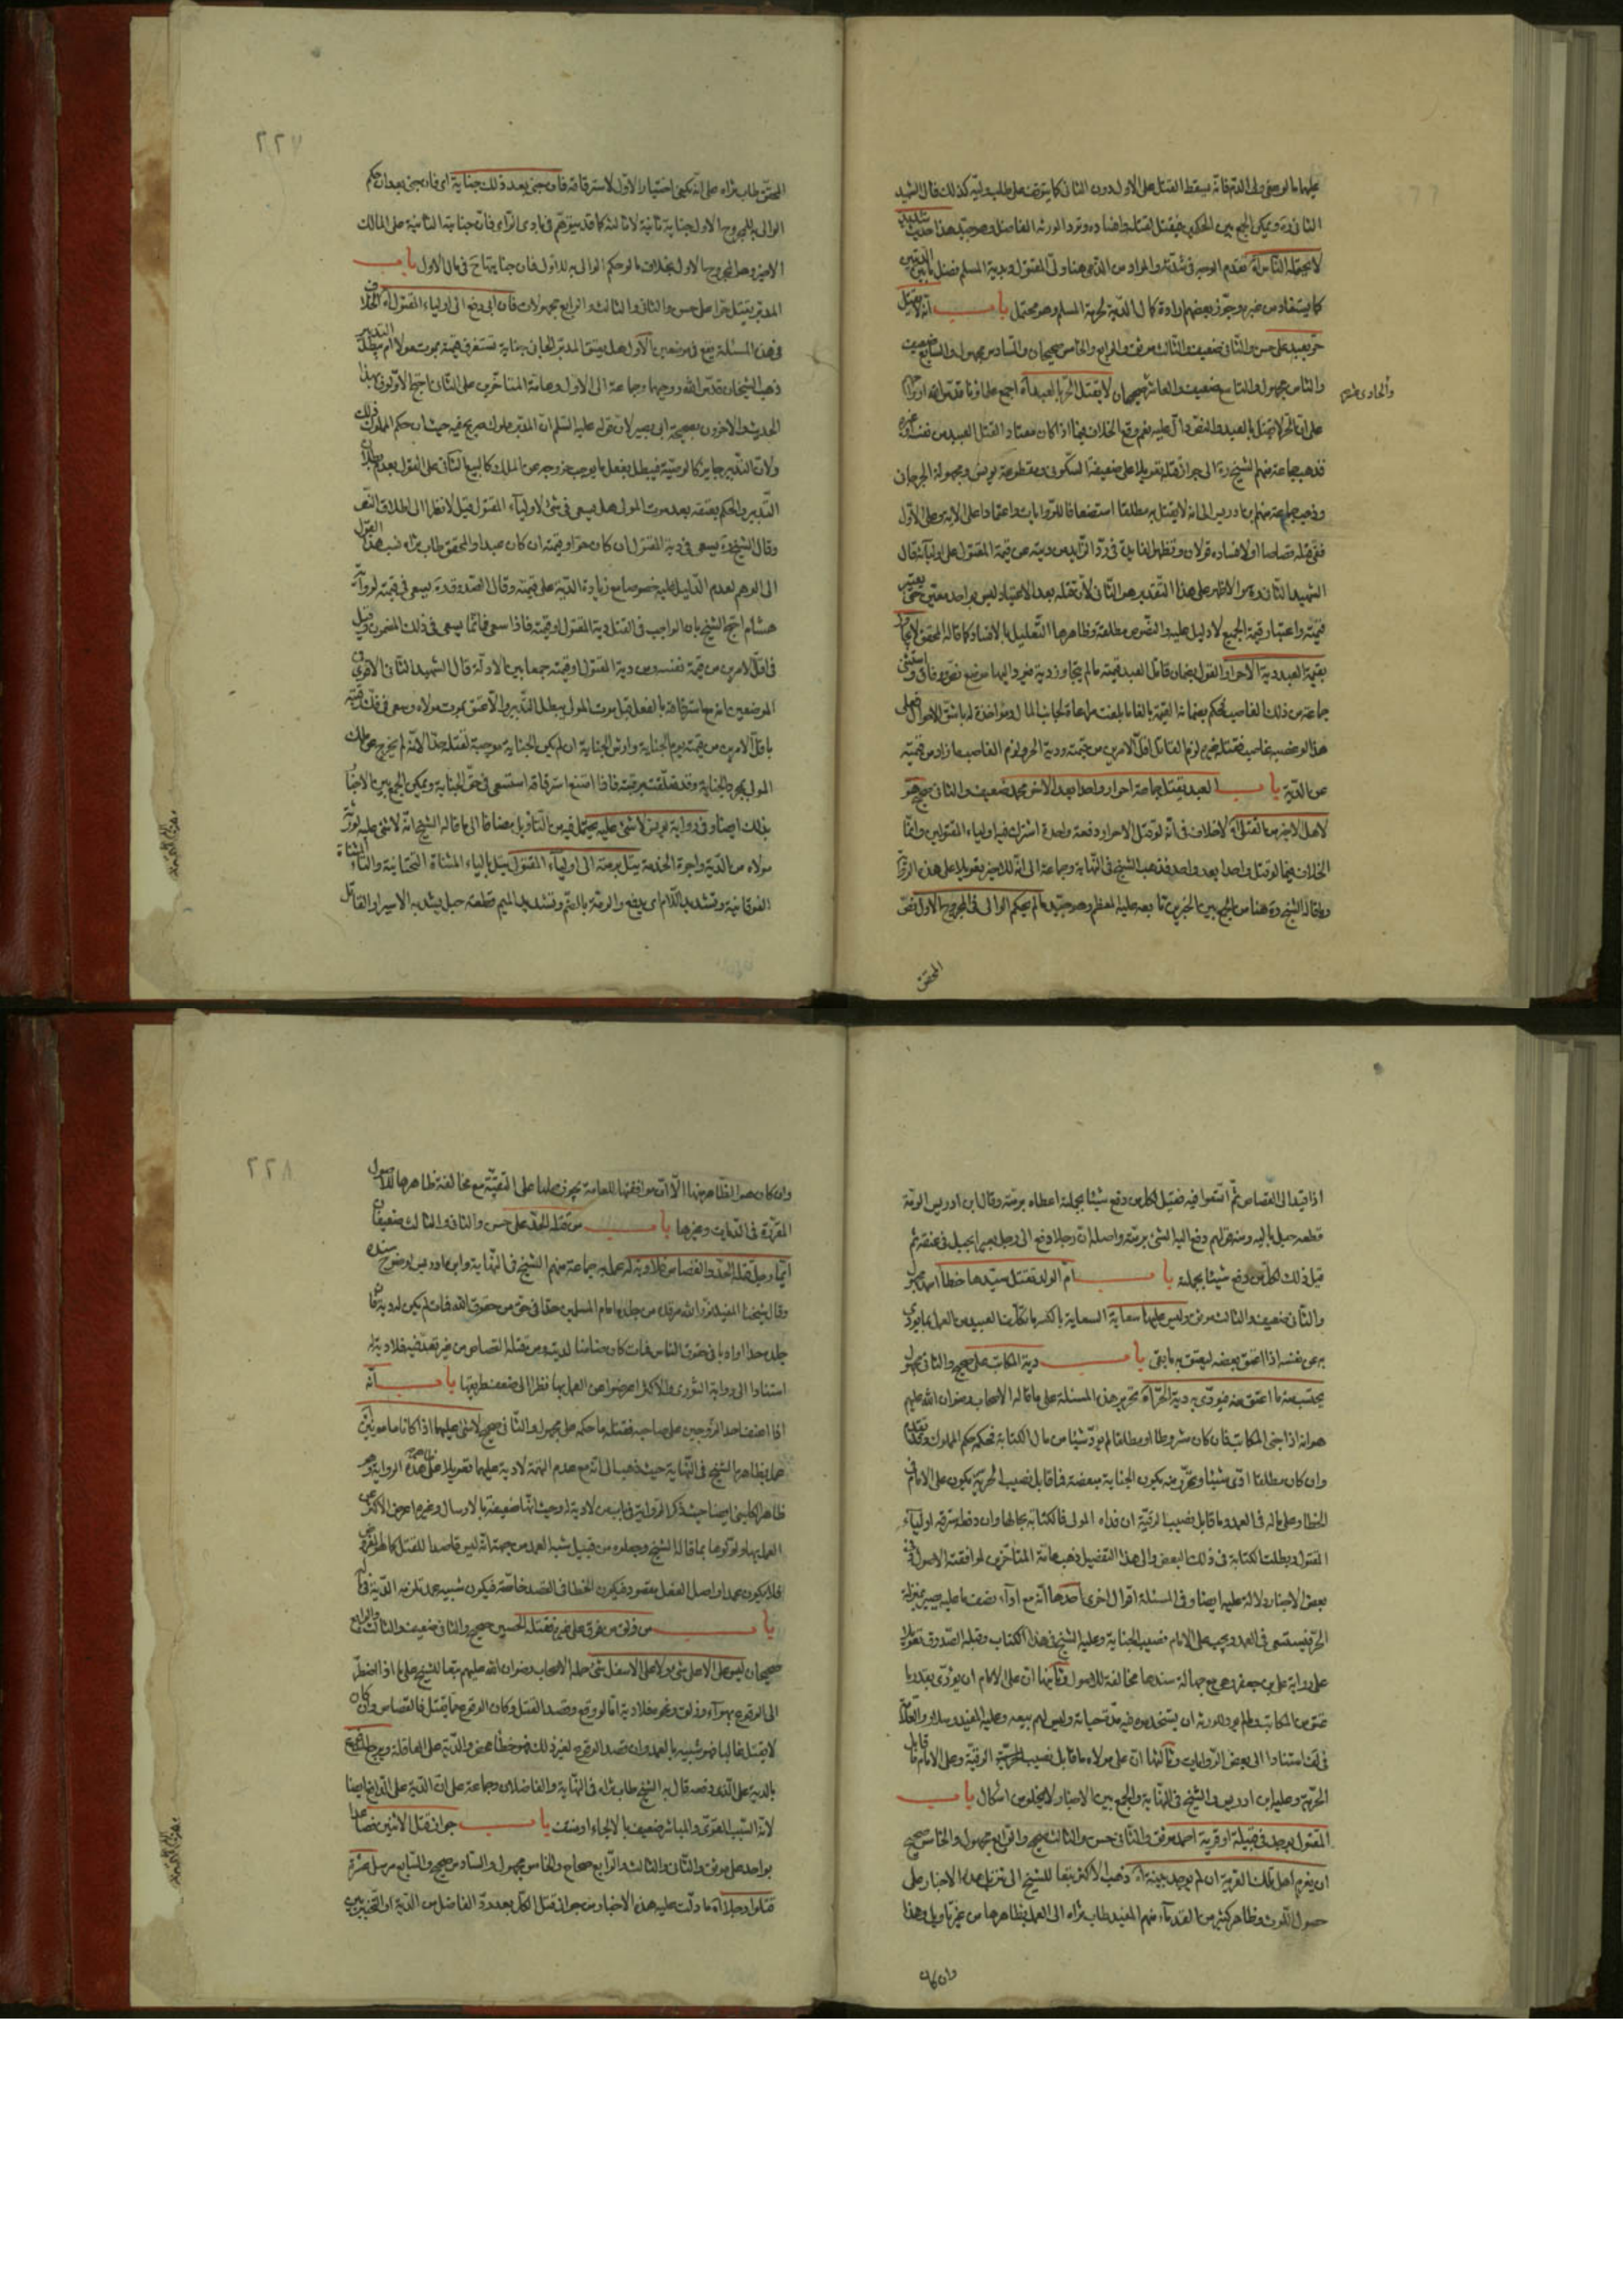 عليها ما لو صفى ولى الدم فانه يسقط القتل على الاول دون الثانى كما يتوقف على طلب وليه كذلك قال الشهيد
الثانى ره ويمكن الجمع بين الحكمين فيقتل لقتله وافساده وترد الورثه الفاضل وهو جيد هذا حديث شديد
لا يحتمله الناس اه تقدم الوجه فى شدته والمراد من الذمى هنا ولى المقتول وبدية المسلم فضل ما بين الديتين
كما يستفاد من غيره وجوز بعضهم ارادة كمال الدية لحرمة المسلم وهو محتمل باب انه لا يقتل
حر بعبد على حسن والثانى ضعيف والثالث موثق والرابع والخامس صحيحان والسادس مجهول والسابع ضعيف
والثامن مجهول والتاسع ضعيف والعاشر صحيحان لا يقتل الحر بالعبد اه اجمع علماؤنا قدس الله ارواحهم
والحادى عشر
على ان الحر لا يقتل بالعبد والنص دال عليه نعم وقع الخلاف فيما اذا كان معتادا لقتل العبيد من نفسه او غيره
فذهب جماعة منهم الشيخ ره الى جواز قتله تعويلا على ضعيفة السكونى ومقطوعة يونس ومجهولة الجرجانى
وذهب جماعة منهم ابن ادريس الى انه لا يقتل به مطلقا استضعافا للروايات واعتمادا على الآية وعلى الاول
ففى قتله قصاصا او لافساده قولان وتظهر الفايدة فى رد الزايد من ديته عن قيمة المقتول على اوليائه قال
الشهيد الثانى ره والاظهر على هذا التقدير هو الثانى لان قتله بعد الاعتياد ليس بواحد معين حتى يعتبر
قيمته واعتبار قيمة الجميع لا دليل عليه والنصوص مطلقة وظاهرها التعليل بالافساد كما قاله المحقق لا يجاوز
بقيمة العبد دية الاحرار القول بضمان قاتل العبد قيمته ما لم يتجاوز دية حر واليها موضع نص ووفاق واستثنى
جماعة من ذلك الغاصب فحكم بضمانه القيمة بالغا ما بلغت مراعاة لجانب المال ومؤاخذة له باشق الاحوال فعلى
هذا لو غصبه غاصب فقتله غيره لزم القاتل اقل الامرين من قيمته ودية الحر ولزم الغاصب ما زاد من قيمته
عن الدية باب العبد يقتل جماعة احرار واحدا بعد الاخر محمد ضعيف والثانى صحيح هو
لاهل الاخير من القتلى اه لا خلاف فى انه لو قتل الاحرار دفعة واحدة اشترك فيه اولياء المقتولين وانما
الخلاف فيما لو قتل واحدا بعد واحد فذهب الشيخ فى النهاية وجماعة الى انه للاخير تعويلا على هذه الرواية
وما قاله الشيخ ره هنا من الجمع بين الخبرين تابعه عليه المعظم وهو جيد ما لم يحكم الوالى فى المجروح الاول نص
المحقق
٢٢٧
المحقق طاب ثراه على انه يكفى اختيار الاول لاسترقاقه فان جنى بعد ذلك جناية اى فان جنى بعد ان حكم
الوالى به للمجروح الاول جناية ثانية لا ثالثة كما قد يتوهم فى بادى الراى فان جنايته الثانية على المالك
الاخير وهو المجروح الاول بخلاف ما لو حكم الوالى به للاول فان جنايتها فى مال الاول باب
المدبر يقتل حرا على حسن والثانى والثالث والرابع مجهولان فان ابى دفع الى اولياء المقتول اه الخلاف
فى هذه المسئلة يقع فى موضعين الاول هل يعتق المدبر الجانى جناية تستغرق قيمته بموت مولاه ام يبطل التدبير
ذهب الشيخان قدس الله روحيهما وجماعة الى الاول وعامة المتاخرين على الثانى احتج الاولون بهذا
الحديث والاخرون بصحيحة ابى بصير لان قوله عليه السلم ان المدبر مملوك صريح فيه حيث ان حكم المملوك ذلك
ولان التدبير جايز كالوصية فيبطل بفعل ما يوجب خروجه عن الملك كالبيع الثانى على القول بعدم بطلان
التدبير والحكم بعتقه بعد موت المولى هل يسعى فى شئ لاولياء المقتول قيل لا نظرا الى اطلاق النص
وقال الشيخ ره يسعى فى دية المقتول ان كان حرا وقيمته ان كان عبدا والمحقق طاب ثراه نسب هذا القول
الى الوهم لعدم الدليل عليه خصوصا مع زيادة الدية على قيمته وقال الصدوق ره يسعى فى قيمته لرواية
هشام احتج الشيخ بان الواجب فى القتل دية المقتول او قيمته فاذا سعى فانما يسعى فى ذلك المضمون وقيل
فى اقل الامرين من قيمة نفسه ومن دية المقتول او قيمته جمعا بين الادلة قال الشهيد الثانى الاقوى فى
الموضعين انه مع استرقاقه بالفعل قبل موت المولى يبطل التدبير والا عتق بموت مولاه وسعى فى فك رقبته
باقل الامرين من قيمته يوم الجناية وارش الجناية ان لم يكن الجناية موجبة لقتله حرا لانه لم يخرج عن ملك
المولى بمجرد الجناية وقد تعلقت برقبته فاذا امتنع استرقاقه استسعى فى حق الجناية ويمكن الجمع بين الاخبار
بذلك ايضا وفى رواية يونس لا شئ عليه يحتمل فيه من التأويل مضافا الى ما قاله الشيخ انه لا شئ عليه لورثة
مولاه من الدية واجرة الخدمة يتل برمته الى اولياء المقتول يتل بالياء المثناة التحتانية والتاء المثناة
الفوقانية وتشديد اللام اى يدفع والرمة بالضم وتشديد الميم قطعة حبل يشد به الاسير او القاتل
اذا قيد الى القصاص ثم اتسعوا فيه فقيل لكل من دفع شيئا بجملته اعطاه برمته وقال ابن ادريس الرمة
قطعة حبل بالية ومنه قولهم دفع اليه الشئ برمته واصله ان رجلا دفع الى رجل بعيرا بحبل فى عنقه ثم
قيل ذلك لكل من دفع شيئا بجملته باب ام الولد تقتل سيدها خطأ احمد مجهول
والثانى ضعيف والثالث موثق وليس عليها سعاية السعاية بالكسر ما تكلف العبيد من العمل ما يؤدى
به عن نفسه اذا اعتق بعضه ليعتق به ما بقى باب دية المكاتب على صحيح والثانى مجهول
يحتسب منه ما اعتق منه فيؤدى به دية الحر اه تحرير هذه المسئلة على ما قاله الاصحاب رضوان الله عليهم
هو انه اذا جنى المكاتب فان كان مشروطا او مطلقا لم يؤد شيئا من مال الكتابة فحكمه حكم المملوك وقد تقدم
وان كان مطلقا ادى شيئا وتحرر منه يكون الجناية ببعضه فما قابل نصيب الحرية يكون على الامام فى
الخطا وعلى ماله فى العمد وما قابل نصيب الرقية ان فداه المولى فالكتابة بحالها وان دفعه استرقه اولياء
المقتول وبطلت الكتابة فى ذلك البعض والى هذا التفصيل ذهب عامة المتأخرين لموافقته الاصول وفى
بعض الاخبار دلالة عليه ايضا وفى المسئلة اقوال اخرى احدها انه مع اداء نصف ما عليه يصير بمنزلة
الحر فيستسعى فى العمد ويجب على الامام نصيب الجناية وعليه الشيخ فى هذا الكتاب وقبله الصدوق تعويلا
على رواية على بن جعفر وهى مع جهالة سندها مخالفة للاصول وثانيها ان على الامام ان يؤدى بقدر ما
عتق من المكاتب وما لم يؤد للورثة ان يستخدموه فيه مدة حياته وليس لهم بيعه وعليه المفيد وسلار والعلامة
فى لف استنادا الى بعض الروايات وثالثها ان على مولاه ما قابل نصيب الرقية وعلى الامام ما قابل
الحرية وعليه ابن ادريس والشيخ فى النهاية والجمع بين الاخبار لا يخلو من اشكال باب
المقتول يوجد فى قبيلة او قرية احمد موثق والثانى حسن والثالث صحيح والرابع مجهول والخامس صحيح
ان يغرم اهل تلك القرية ان لم توجد بينة اه ذهب الاكثر تبعا للشيخ الى تنزيل هذه الاخبار على
حصول اللوث وظاهر كثير من القدماء منهم المفيد طاب ثراه الى العمل بظاهرها من غير تاويل وهذا
وان كان
٢٢٨
وان كان هو الظاهر منها الا ان موافقتها للعامة يجوز حملها على التقية مع مخالفة ظاهرها للاصول
المقررة فى الديات وغيرها باب من قتله الحد على حسن والثانى والثالث ضعيفان
ايما رجل قتله الحد والقصاص فلا دية له عمل به جماعة منهم الشيخ فى النهاية وابن ادريس لوضوح سنده
وقال شيخنا المفيد نور الله مرقده من جلده امام المسلمين حدا فى حق من حقوق الله فمات لم يكن له دية فان
جلده حدا او ادبا فى حقوق الناس فمات كان ضامنا لديته ومن قتله القصاص من غير تعد فيه فلا دية له
استنادا الى رواية الثورى والاكثر اعرضوا عن العمل بها نظرا الى ضعف طريقها باب انه
اذا اعنف احد الزوجين على صاحبه فقتله ما حكمه على مجهول والثانى صحيح لا شئ عليهما اذا كانا مامونين
عمل بظاهره الشيخ فى النهاية حيث ذهب الى انه مع عدم التهمة لا دية عليهما تعويلا على هذه الرواية وهو
ظاهر الكلينى ايضا حيث ذكر الرواية فى باب من لا دية له وحيث انها ضعيفة بالارسال وغيره اعرض الاكثر عن
العمل بها واولوها بما قاله الشيخ وجعلوه من قبيل شبه العمد من جهة انه ليس قاصدا للقتل كما هو المفروض
فلا يكون عمدا واصل الفعل مقصود فيكون الخطا فى القصد خاصة فيكون شبيه عمد تلزم به الدية فى ماله
باب من زلق من فوق على غيره فقتله الحسين صحيح والثانى ضعيف والثالث والرابع
صحيحان ليس على الاعلى شئ ولا على الاسفل شئ حمله الاصحاب رضوان الله عليهم تبعا للشيخ على ما اذا اضطر
الى الوقوع بهواء وزلق ونحوه فلا دية اما لو وقع وقصد القتل وكان الوقوع مما يقتل فالقصاص وان كان
لا يقتل غالبا فهو شبيه بالعمد وان قصد الوقوع لغير ذلك فهو خطأ محض والدية على العاقلة ويرجع
بالدية على الذى دفعه قال به الشيخ طاب ثراه فى النهاية والفاضلان وجماعة على ان الدية على الدافع ايضا
لانه السبب القوى والمباشر ضعيف بالالجاء او منتف باب جواز قتل الاثنين فصاعدا
بواحد على موثق والثانى والثالث والرابع صحاح والخامس مجهول والسادس صحيح والسابع مرسل عشرة
قتلوا رجلا اه ما دلت عليه هذه الاخبار من جواز قتل الكل بعد رد الفاضل من الدية او التخيير بين